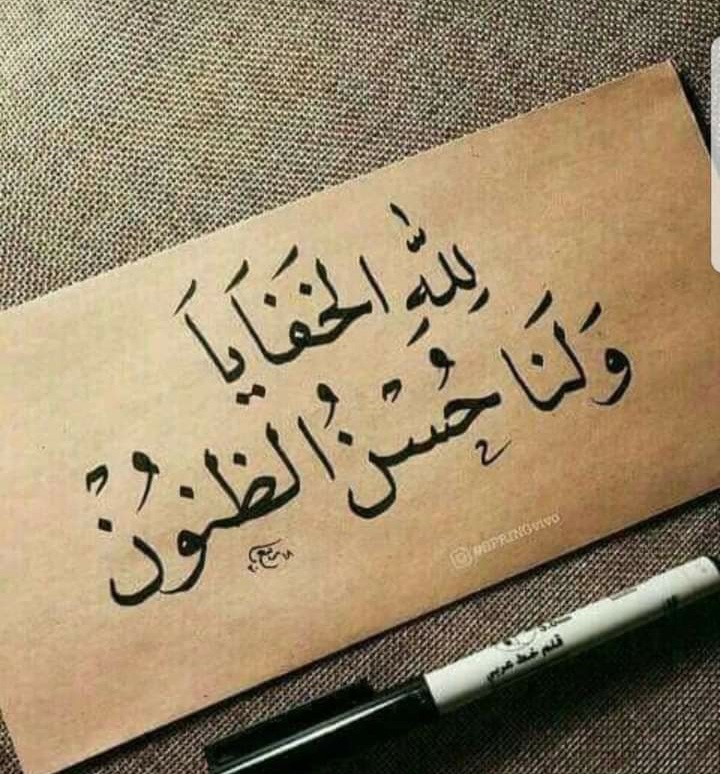 لِلَّهِ الخَفَايَا
وَلَنَا حُسْنُ الظُنُونْ
@SPRINGVIVO
قلم خط عربي